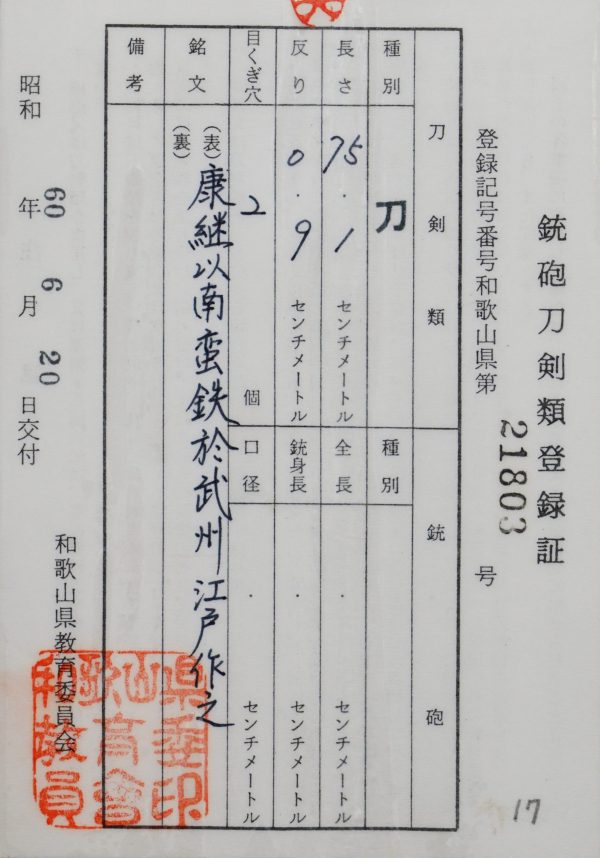 銃砲刀剣類登録証
登録記号番号和歌山県第 21803 号
刀剣類
種別 刀
長さ 75.1 センチメートル
反り 0.9 センチメートル
目くぎ穴 2 個
銃砲
種別
全長 . センチメートル
銃身長 . センチメートル
口径 センチメートル
銘文
(表) 康継以南蛮鉄於武州江戸作之
(裏)
備考
昭和 60 年 6 月 20 日交付
和歌山県教育委員会
和歌山県教育委員會印
17